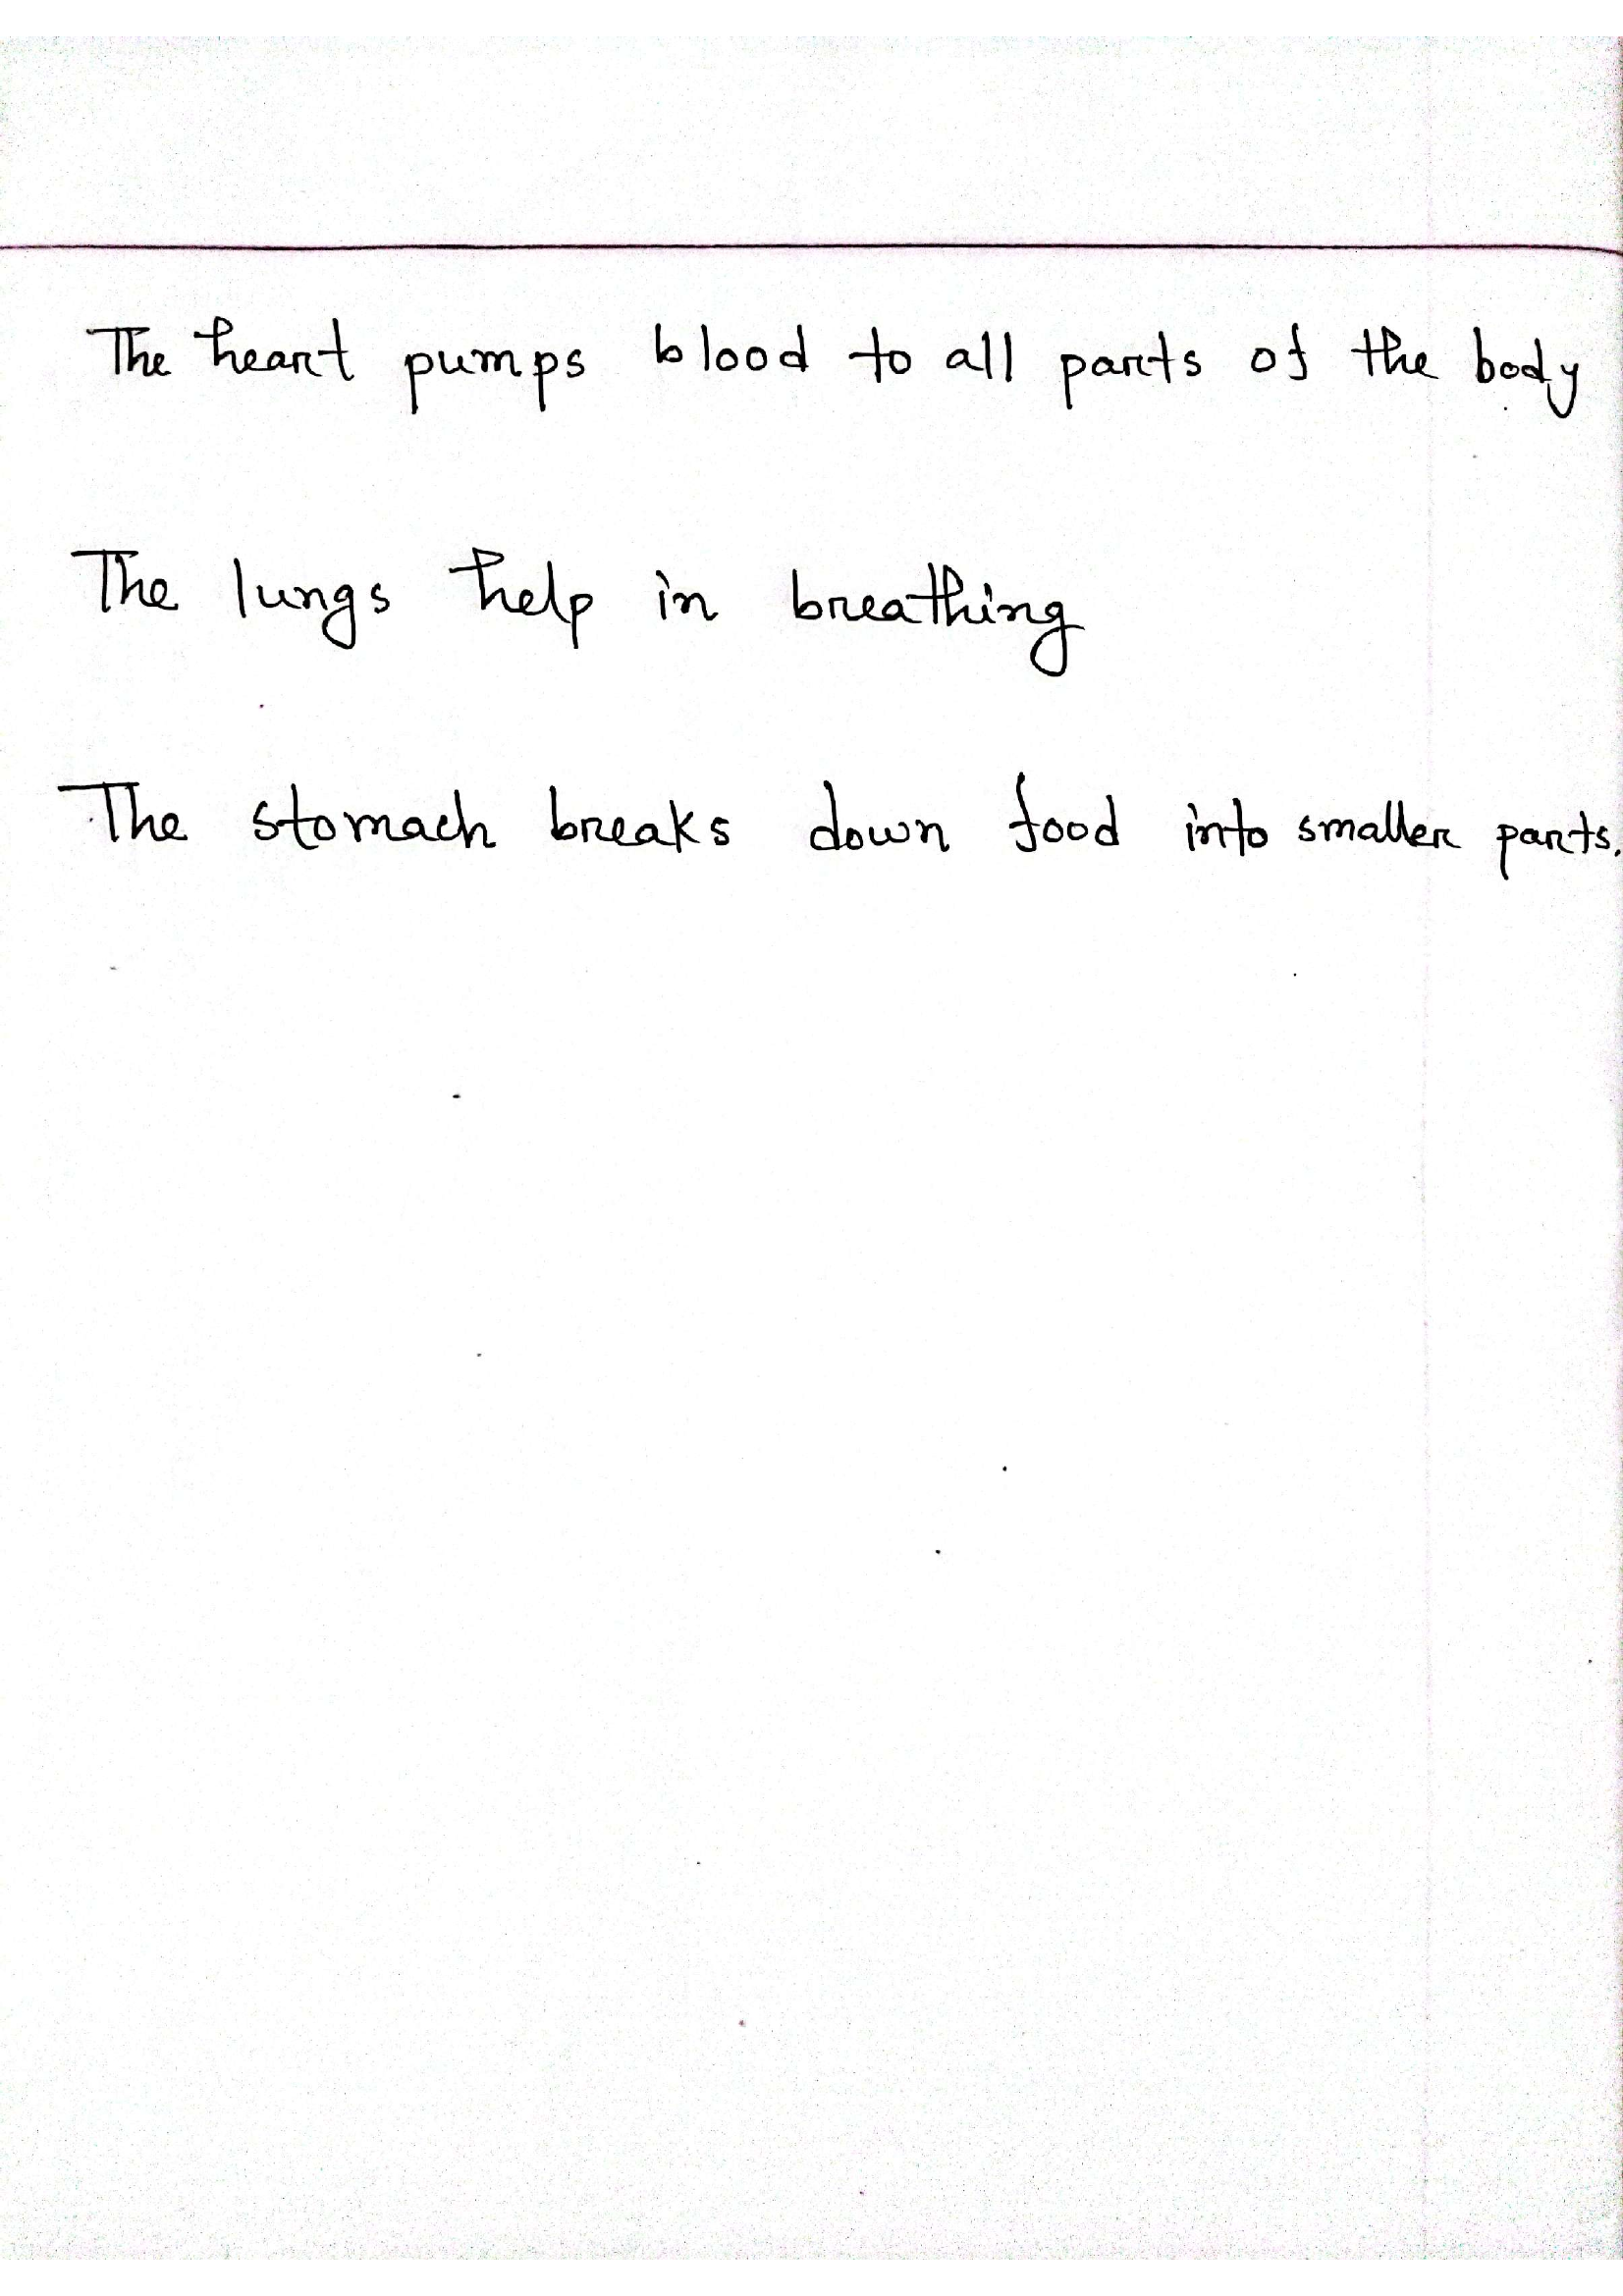 The heart pumps blood to all parts of the body
The lungs help in breathing
The stomach breaks down food into smaller parts.